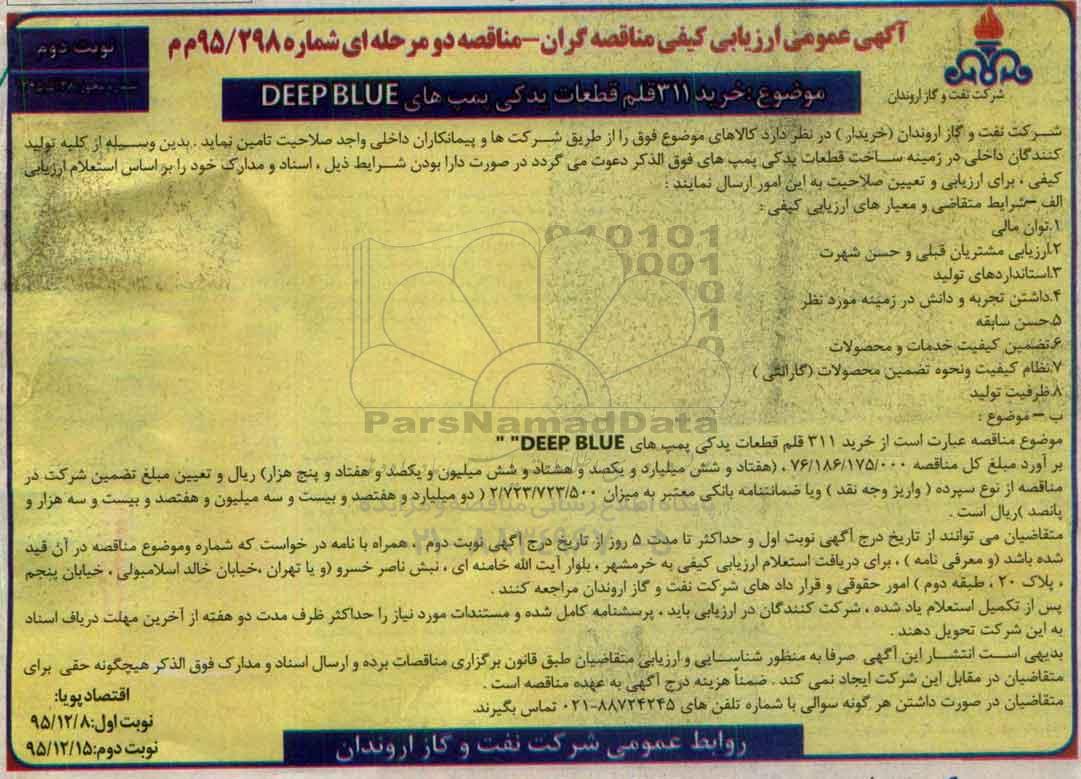 آگهی عمومی ارزیابی کیفی مناقصه گران-مناقصه دو مرحله ای شماره ۹۵/۲۹۸م م
نوبت دوم
شرکت نفت و گاز اروندان
موضوع :خرید ۳۱۱قلم قطعات یدکی پمپ های DEEP BLUE
شرکت نفت و گاز اروندان (خریدار) در نظر دارد کالاهای موضوع فوق را از طریق شرکت ها و پیمانکاران داخلی واجد صلاحیت تامین نماید .بدین وسیله از کلیه تولید
کنندگان داخلی در زمینه ساخت قطعات یدکی پمپ های فوق الذکر دعوت می گردد در صورت دارا بودن شرایط ذیل ، اسناد و مدارک خود را بر اساس استعلام ارزیابی
کیفی ، برای ارزیابی و تعیین صلاحیت به این امور ارسال نمایند :
الف –شرایط متقاضی و معیار های ارزیابی کیفی :
۱.توان مالی
۲.ارزیابی مشتریان قبلی و حسن شهرت
۳.استانداردهای تولید
۴.داشتن تجربه و دانش در زمینه مورد نظر
۵.حسن سابقه
۶.تضمین کیفیت خدمات و محصولات
۷.نظام کیفیت ونحوه تضمین محصولات (گارانتی )
۸.ظرفیت تولید
ب – موضوع :
موضوع مناقصه عبارت است از خرید ۳۱۱ قلم قطعات یدکی پمپ های DEEP BLUE" "
بر آورد مبلغ کل مناقصه ۷۶/۱۸۶/۱۷۵/۰۰۰ ، (هفتاد و شش میلیارد و یکصد و هشتاد و شش میلیون و یکصد و هفتاد و پنج هزار) ریال و تعیین مبلغ تضمین شرکت در
مناقصه از نوع سپرده ( واریز وجه نقد ) ویا ضمانتنامه بانکی معتبر به میزان ۲/۷۲۳/۷۲۳/۵۰۰ ( دو میلیارد و هفتصد و بیست و سه میلیون و هفتصد و بیست و سه هزار و
پانصد )ریال است .
متقاضیان می توانند از تاریخ درج آگهی نوبت اول و حداکثر تا مدت ۵ روز از تاریخ درج آگهی نوبت دوم ، همراه با نامه در خواست که شماره وموضوع مناقصه در آن قید
شده باشد (و معرفی نامه ) ، برای دریافت استعلام ارزیابی کیفی به خرمشهر ، بلوار آیت الله خامنه ای ، نبش ناصر خسرو (و یا تهران ،خیابان خالد اسلامبولی ، خیابان پنجم
، پلاک ۲۰ ، طبقه دوم ) امور حقوقی و قرار داد های شرکت نفت و گاز اروندان مراجعه کنند .
پس از تکمیل استعلام یاد شده ، شرکت کنندگان در ارزیابی باید ، پرسشنامه کامل شده و مستندات مورد نیاز را حداکثر ظرف مدت دو هفته از آخرین مهلت دریاف اسناد
به این شرکت تحویل دهند .
بدیهی است انتشار این آگهی صرفا به منظور شناسایی و ارزیابی متقاضیان طبق قانون برگزاری مناقصات برده و ارسال اسناد و مدارک فوق الذکر هیچگونه حقی برای
متقاضیان در مقابل این شرکت ایجاد نمی کند . ضمناً هزینه درج آگهی به عهده مناقصه است .
متقاضیان در صورت داشتن هر گونه سوالی با شماره تلفن های ۸۸۷۲۴۲۴۵-۰۲۱ تماس بگیرند.
اقتصاد پویا:
نوبت اول:۹۵/۱۲/۸
نوبت دوم:۹۵/۱۲/۱۵
روابط عمومی شرکت نفت و گاز اروندان
ParsNamadData
پایگاه اطلاع رسانی مناقصه و مزایده